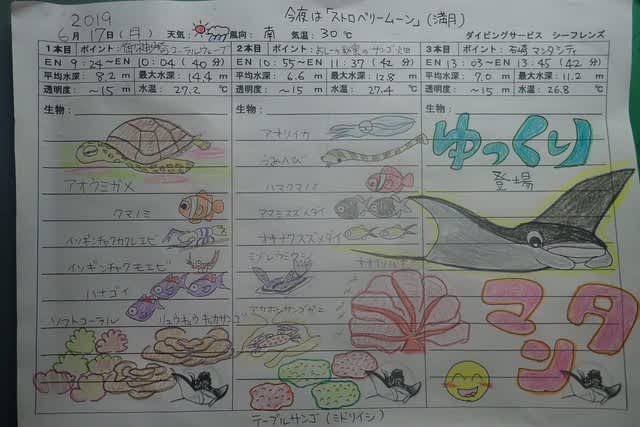 2019 今夜は「ストロベリームーン」(満月)
6月17日(月) 天気: 風向: 南 気温: 30℃ ダイビングサービス シーフレンズ
1本目 ポイント: 御神崎
EN 9:24〜EN 10:04 (40分)
平均水深: 8.2 m 最大水深: 14.4 m
透明度: 〜15 m 水温: 27.2 ℃
生物:
アオウミガメ
クマノミ
イソギンチャクカクレエビ
イソギンチャクモエビ
ハナゴイ
ソフトコーラル リュウキュウキッカサンゴ
2本目 ポイント: 秘密のサンゴ畑
EN 10:55〜EN 11:37 (42分)
平均水深: 6.6 m 最大水深: 12.8 m
透明度: 〜15 m 水温: 27.4 ℃
生物:
アオリイカ
うみへび
ハマクマノミ
アマミスズメダイ
オキナワスズメダイ
ミゾレウミウシ
アカホシサンゴガニ
テーブルサンゴ(ミドリイシ)
3本目 ポイント: 石崎 マンタシティ
EN 13:03〜EN 13:45 (42分)
平均水深: 7.0 m 最大水深: 11.2 m
透明度: 〜15 m 水温: 26.8 ℃
生物:
ゆっくり
登場
マンタ